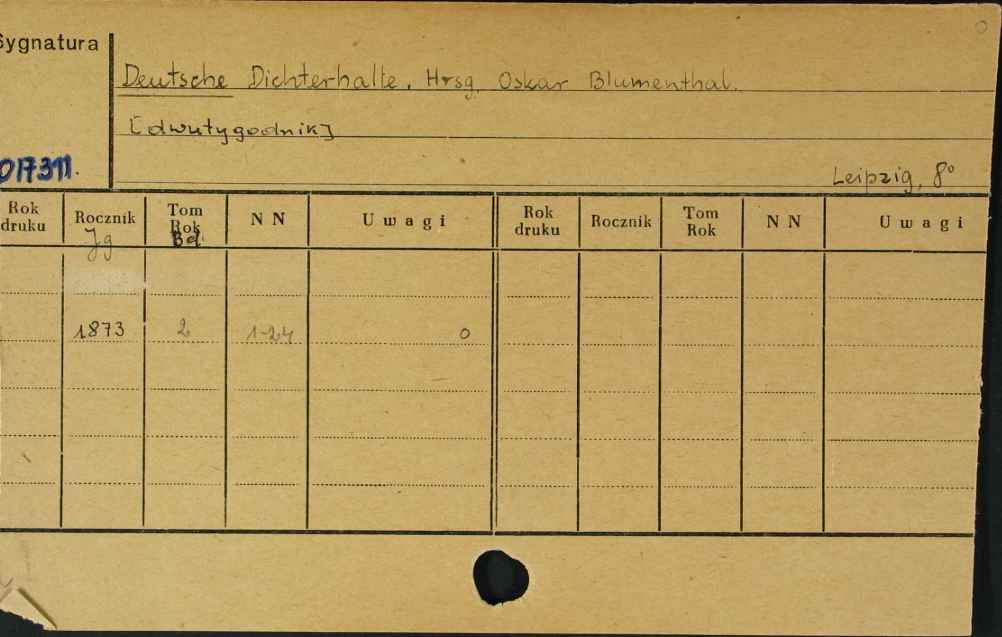 Sygnatura
Deutsche Dichterhalle. Hrsg. Oskar Blumenthal.
[dwutygodnik]
017311.
Leipzig, 8°
Rok druku Rocznik Tom Rok N N Uwagi Rok druku Rocznik Tom Rok N N Uwagi
Jg Bd.
1873 2 1-24 0